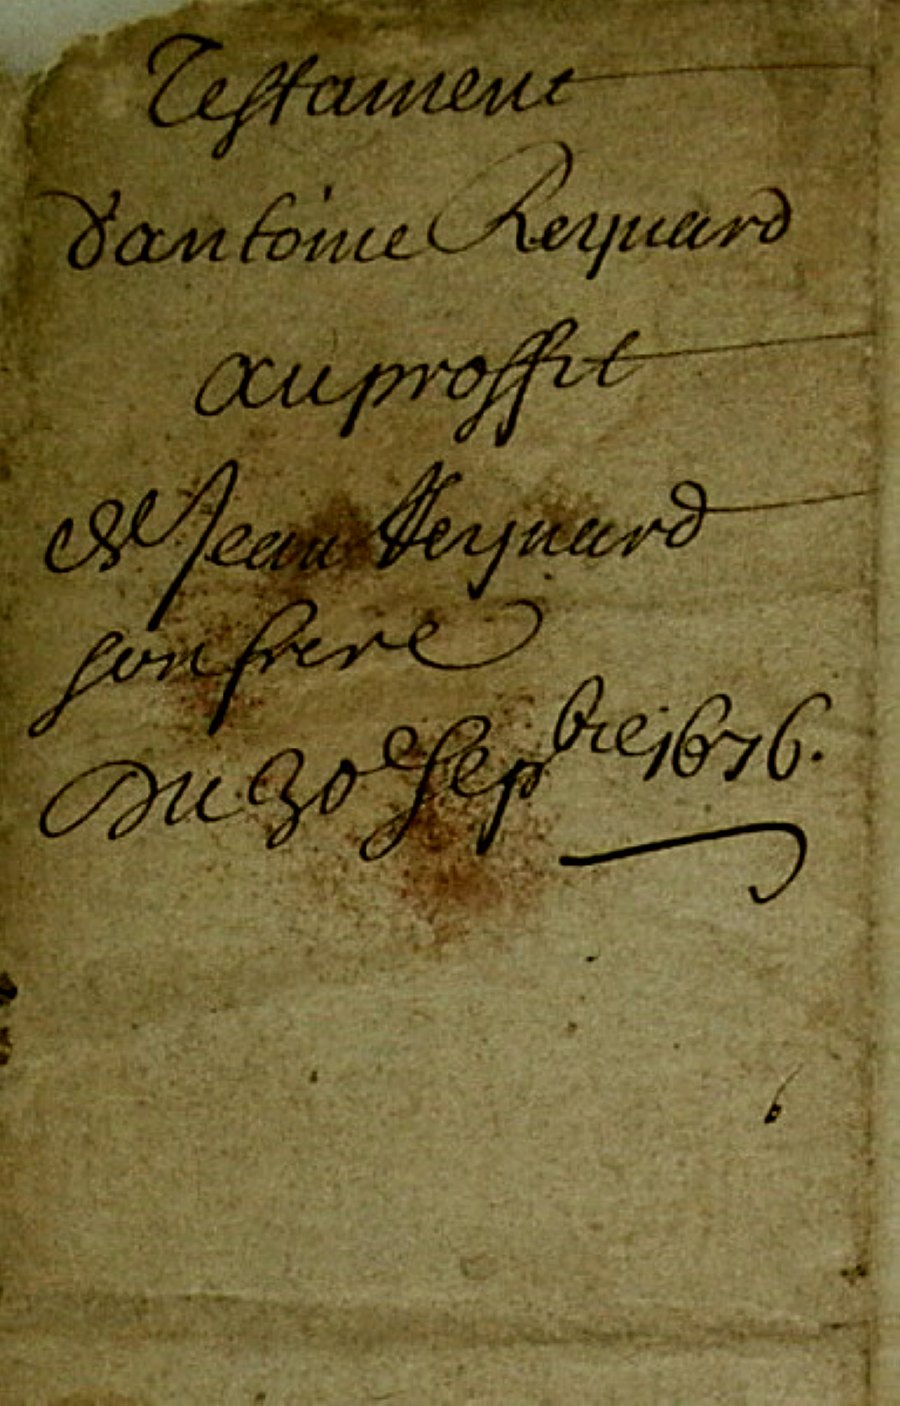 Testament
d'antoine Reynard
au proffit
de Jean Reynard
son frere
Du 30e Sepbre 1676.
6